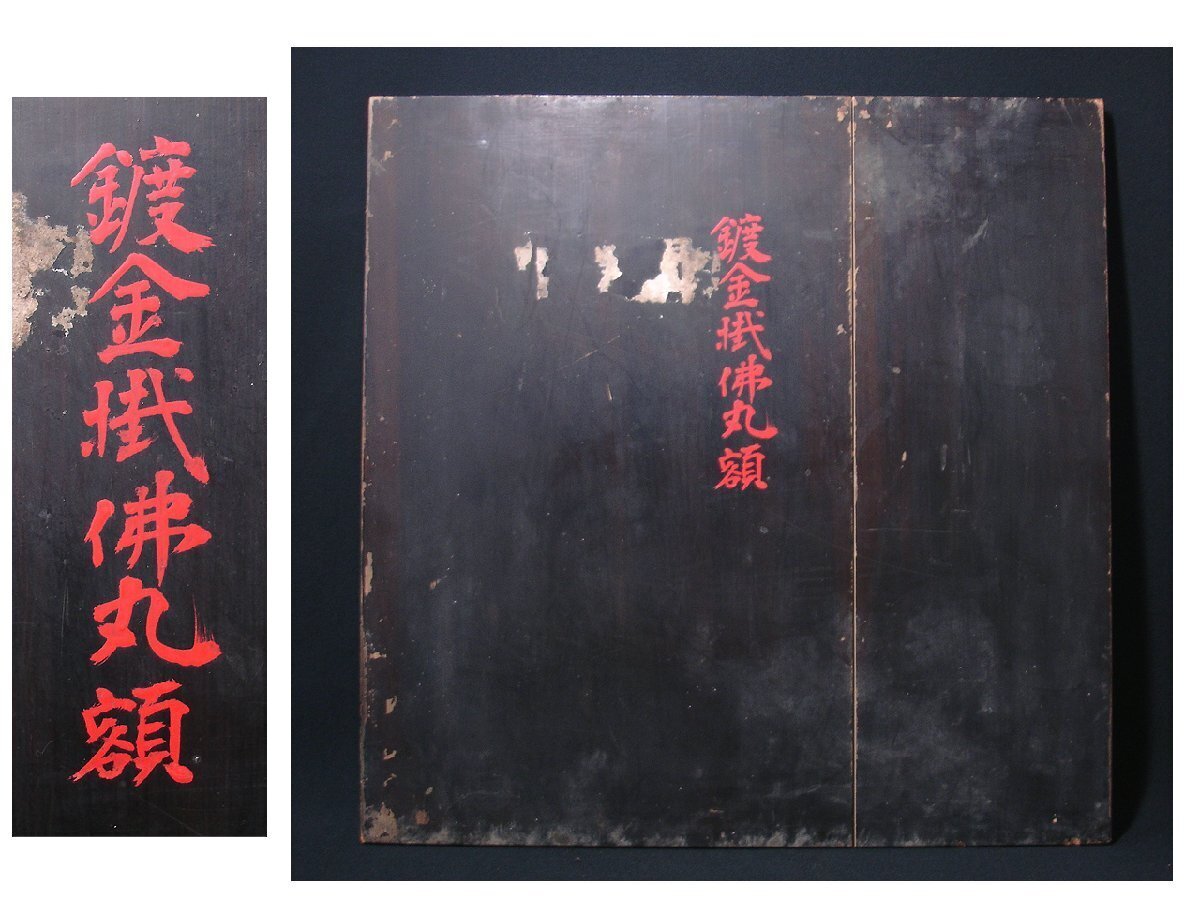 鍍金掛佛丸額
鍍金掛佛丸額